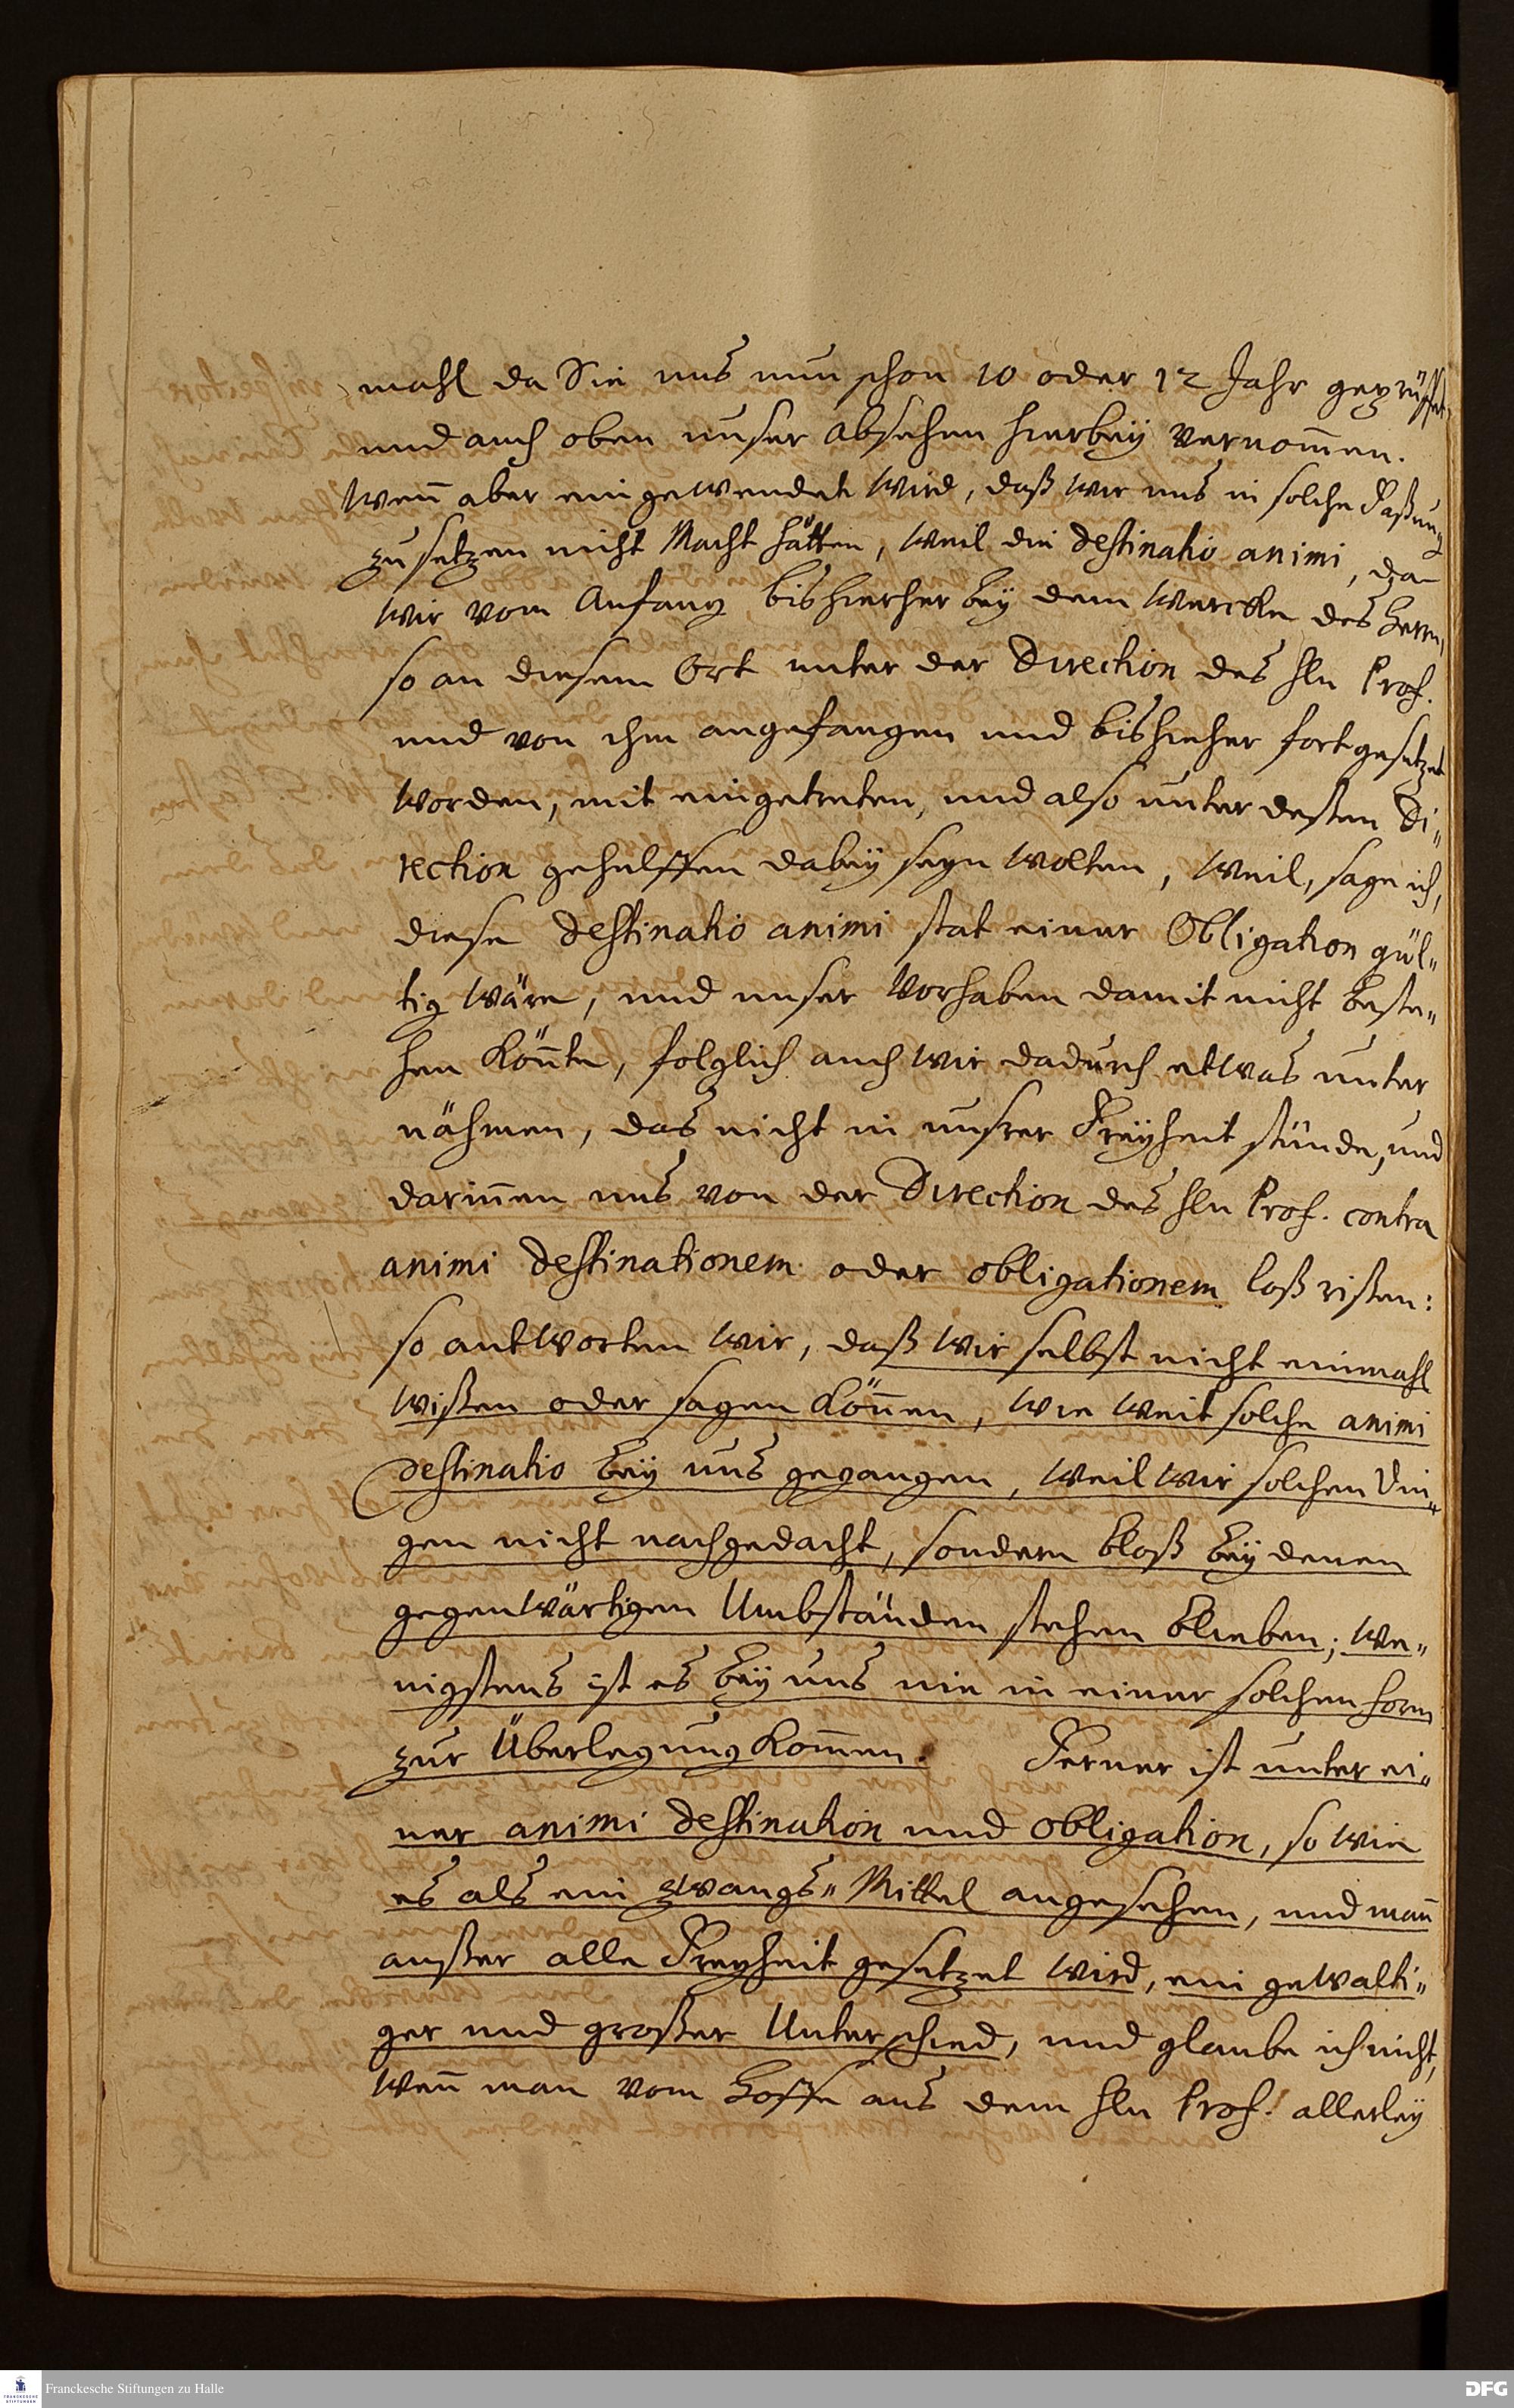 mahl da Sie uns nun schon 10 oder 12 Jahr geprüfft,
und auch oben unser absehen hierbeÿ vernom̄en.
Wen̄ aber eingewendet wird, daß wir uns in solche Faßung
zu setzen nicht Macht hätten, weil die destinatio animi, da
wir vom Anfang bishierher beÿ dem Wercke des Herrn,
so an diesem Ort unter der Direction des Hln Prof.
und von ihm angefangen und bishieher fortgesetzet
worden, mit eingetreten, und also unter deßen Di„
rection gehülffen dabeÿ seyn wolten, weil, sage ich,
diese destinatio animi stat einer Obligation gül„
tig wäre, und unser Vorhaben damit nicht beste„
hen kön̄te, folglich auch wir dadurch etwas unter
nähmen, das nicht in unsrer Freÿheit stünde, und
darin̄en uns von der Direction des Hln Prof. contra
animi destinationem oder obligationem loß rißen:
so antworten wir, daß wir selbst nicht einmahl
wißen oder sagen kön̄en, wie weit solche animi
destinatio beÿ uns gegangen, weil wir solchen Din„
gen nicht nachgedacht, sondern bloß beÿ denen
gegenwärtigen Umbständen stehen blieben; we„
nigstens ist es beÿ uns nie in einer solchen form
zur Überlegung kom̄en. Ferner ist unter ei„
ner animi destination und obligation, so wie
es als ein Zwangs„Mittel angesehen, und man̄
außer alle Freyheit gesetzet wird, ein gewalti„
ger und großer Unterschied, und glaube ich nicht,
wen̄ man vom Hoffe aus dem Hln Prof. allerleÿ
Franckesche Stiftungen zu Halle
FRANCKESCHE STIFTUNGEN
DFG